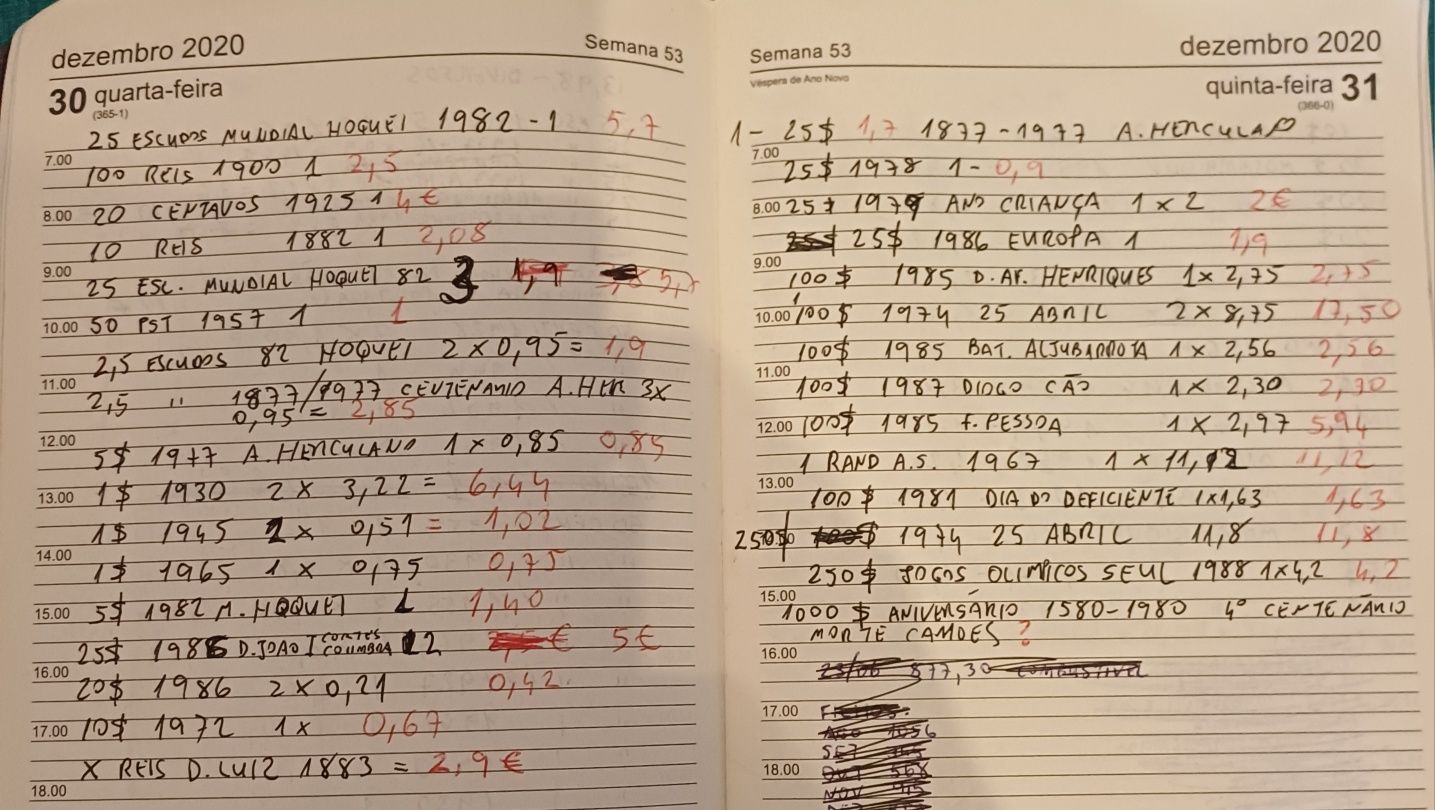 dezembro 2020
Semana 53
30 quarta-feira
(365-1)
25 ESCUDOS MUNDIAL HOQUEI 1982 - 1 5,7
7.00
100 REIS 1900 1 2,5
8.00 20 CENTAVOS 1925 1 4€
10 REIS 1882 1 2,08
9.00
25 ESC. MUNDIAL HOQUEI 82 3 1,9 5,7
10.00 50 PST 1957 1 1
2,5 ESCUDOS 82 HOQUEI 2 x 0,95 = 1,9
11.00
2,5 " 1877/1977 CENTENARIO A. HER 3x
0,95 = 2,85
12.00
5$ 1977 A. HERCULANO 1 x 0,85 0,85
13.00 1$ 1930 2 x 3,22 = 6,44
1$ 1945 2 x 0,51 = 1,02
14.00
1$ 1965 1 x 0,75 0,75
15.00 5$ 1982 M. HOQUEI 1 1,40
25$ 1986 D. JOAO I CORTES COIMBRA 2 € 5€
16.00
20$ 1986 2 x 0,21 0,42
17.00 10$ 1972 1x 0,67
X REIS D. LUIZ 1883 = 2,9 €
18.00
Semana 53
dezembro 2020
Véspera de Ano Novo
quinta-feira 31
(366-0)
1 - 25$ 1,7 1877 - 1977 A. HERCULAO
7.00
25$ 1978 1 - 0,9
8.00 25 1979 ANO CRIANÇA 1 x 2 2€
25$ 25$ 1986 EUROPA 1 1,9
9.00
100$ 1985 D. AF. HENRIQUES 1 x 2,75 2,75
10.00 100$ 1974 25 ABRIL 2 x 8,75 17,50
100$ 1985 BAT. ALJUBARROTA 1 x 2,56 2,56
11.00
100$ 1987 DIOGO CÃO 1 x 2,30 2,30
12.00 100$ 1985 F. PESSOA 1 x 2,97 5,94
1 RAND A.S. 1967 1 x 11,12 11,12
13.00
100$ 1981 DIA DO DEFICIENTE 1x1,63 1,63
250$ 100$ 1974 25 ABRIL 11,8 11,8
250$ JOGOS OLIMPICOS SEUL 1988 1x4,2 4,2
15.00
1000$ ANIVERSÁRIO 1580-1980 4º CENTENÁRIO
MORTE CAMOES ?
16.00
23/06 877,30 COMBUSTIVEL
17.00
AGO 1056
SET
18.00 OUT 568
NOV 915